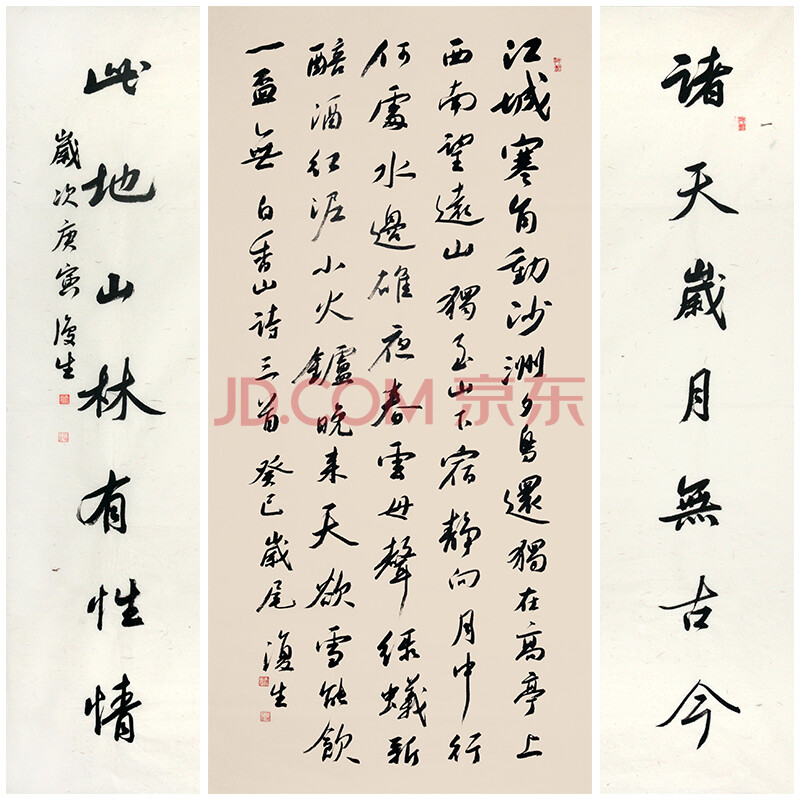 諸天歲月無古今
江城寒角動沙洲夕鳥還獨在高亭上
西南望遠山獨到山下宿靜向月中行
何處水邊碓夜舂雲母聲綠蟻新
醅酒紅泥小火鑪晚來天欲雪能飲
一盃無 白香山詩三首 癸巳歲尾 復生
此地山林有性情
歲次庚寅 復生
JD.COM 京东